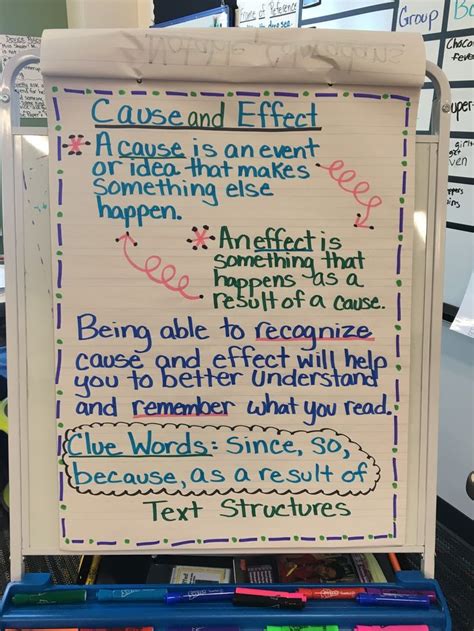 Cause and Effect
* A cause is an event
or idea that makes
something else
happen.
* An effect is
something that
happens as a
result of a cause.
Being able to recognize
cause and effect will help
you to better understand
and remember what you read.
Clue Words: since, so,
because, as a result of
Text Structures
Group